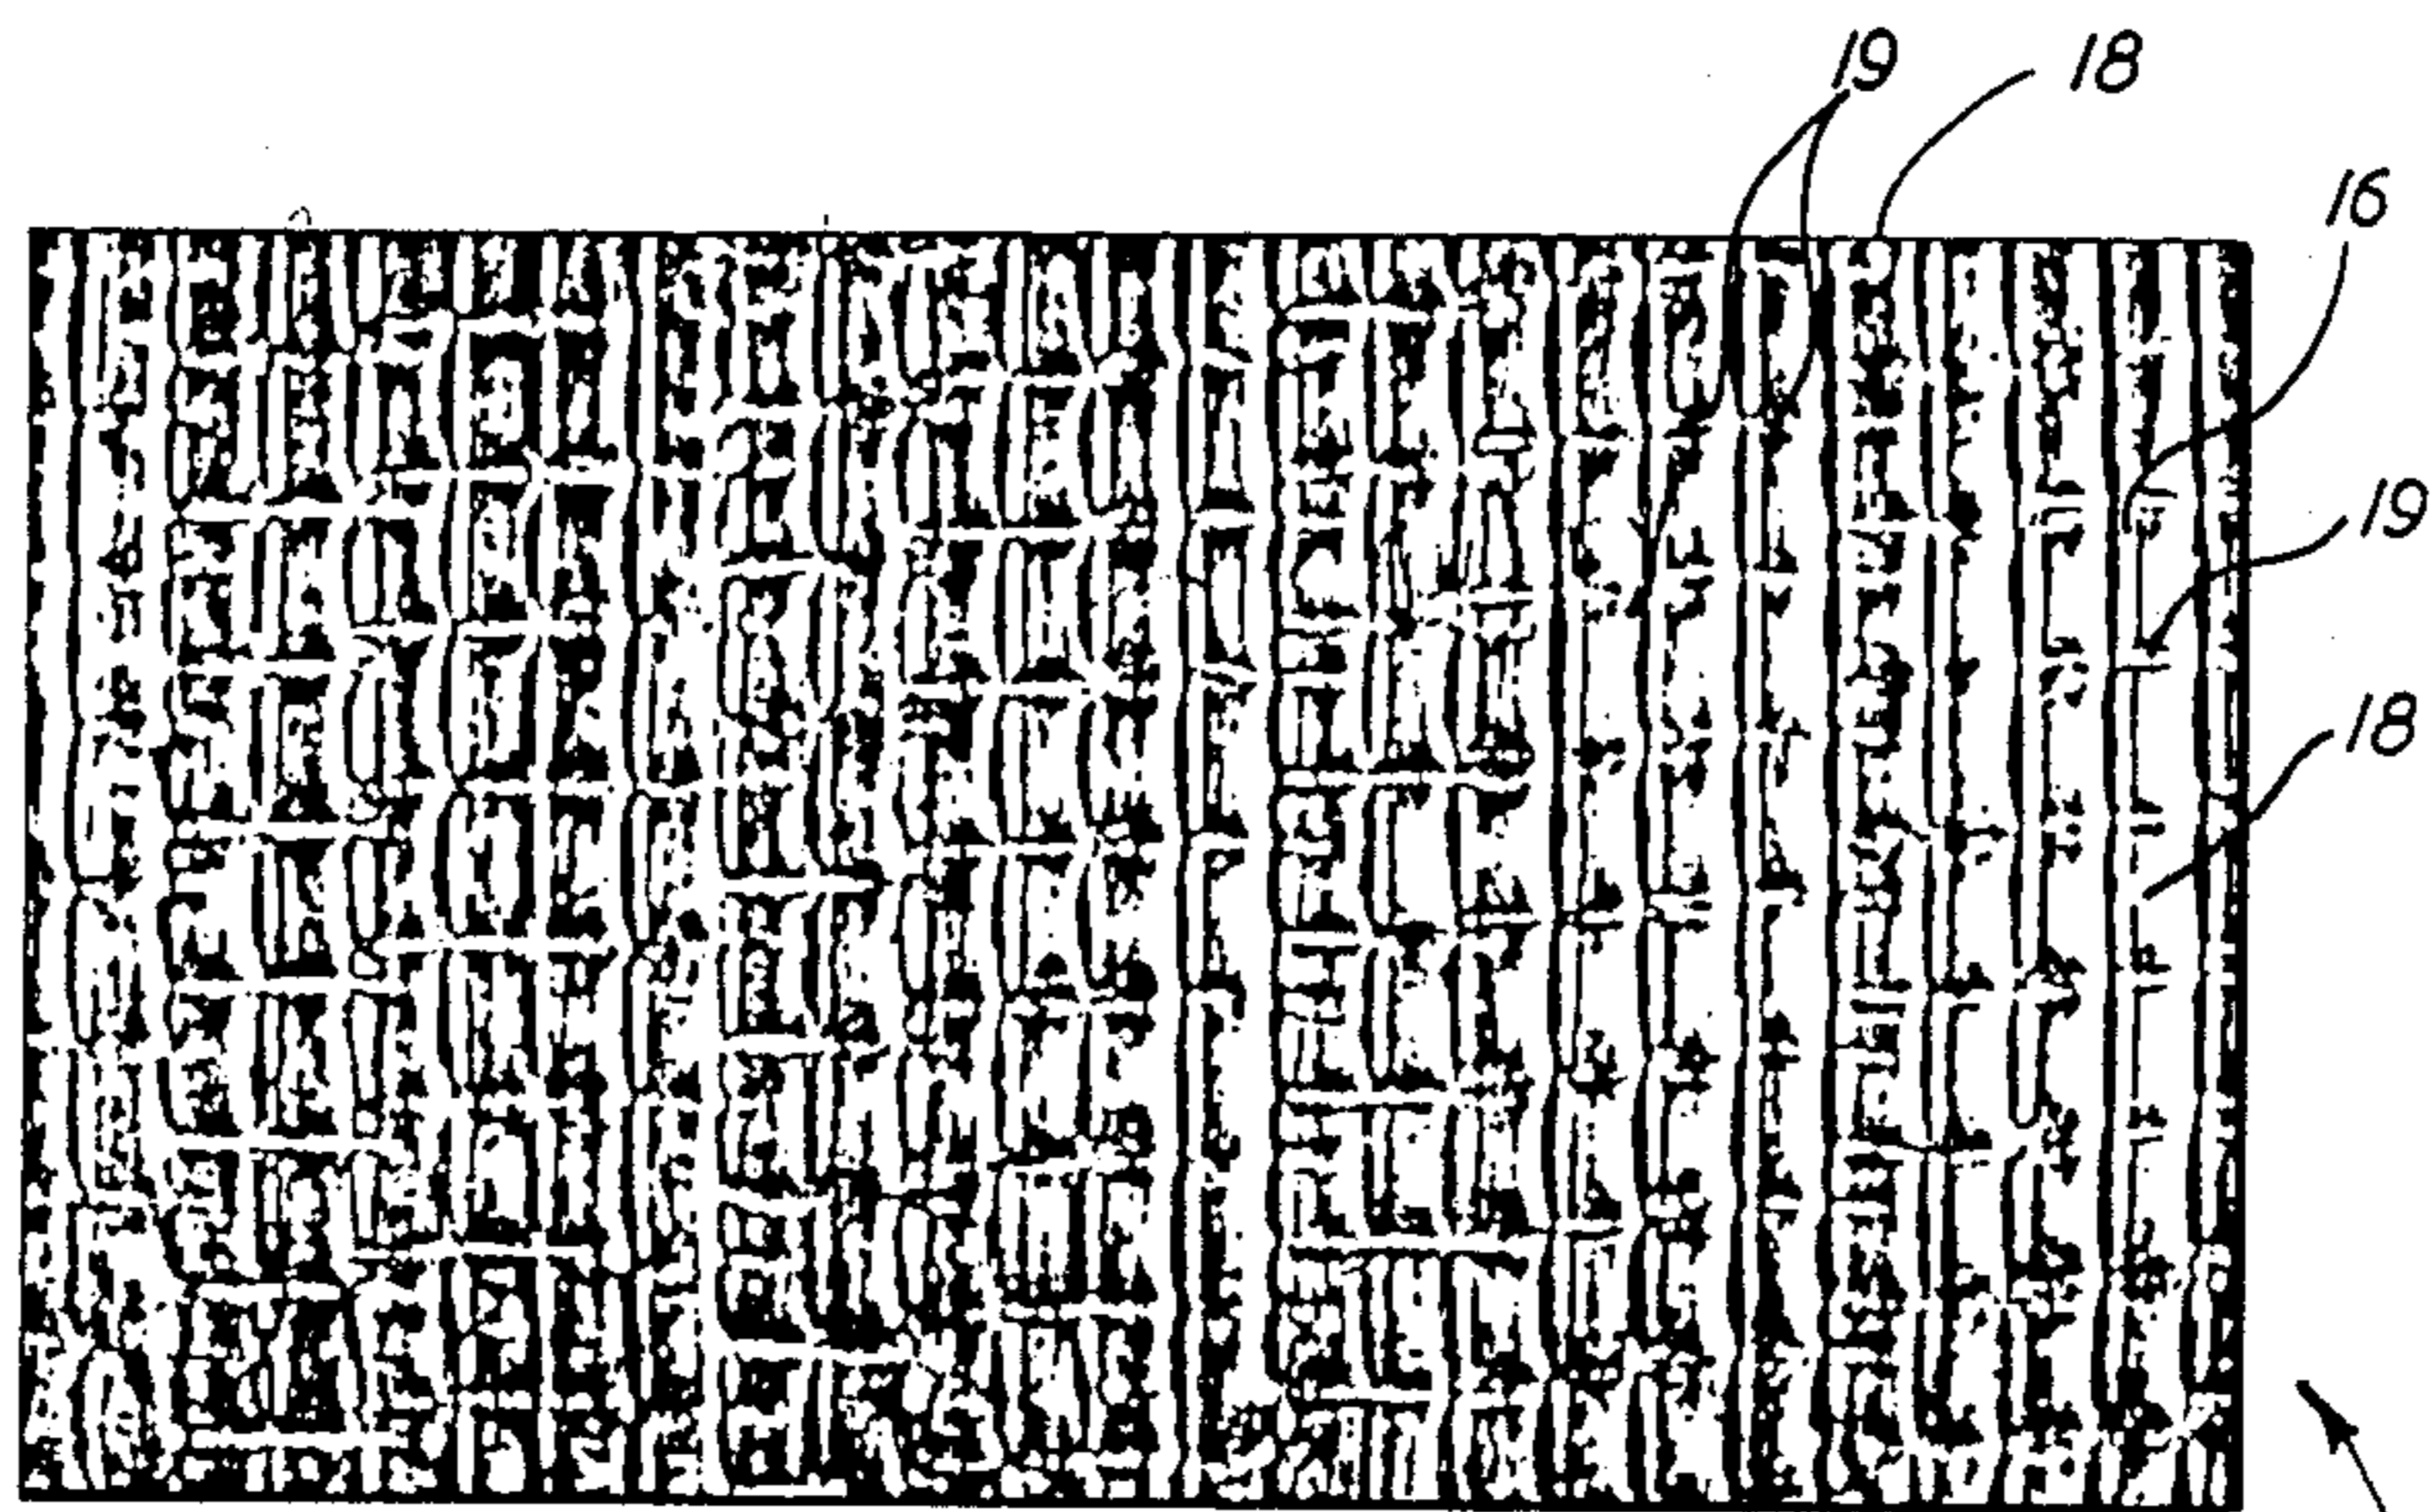 19
18
16
19
18